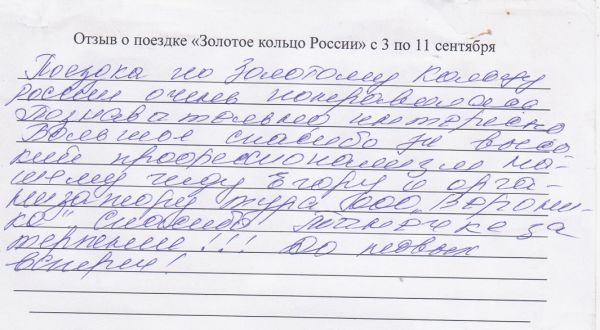 Отзыв о поездке «Золотое кольцо России» с 3 по 11 сентября
Поездка по Золотому Кольцу
россии очень понравилась
Познавательно интересно
Большое спасибо за высо
кий профессионализм на-
шему гиду Егору и орга-
низатору тура ООО „Верони-
ка" спасибо за
терпение!!! До новых
встреч!